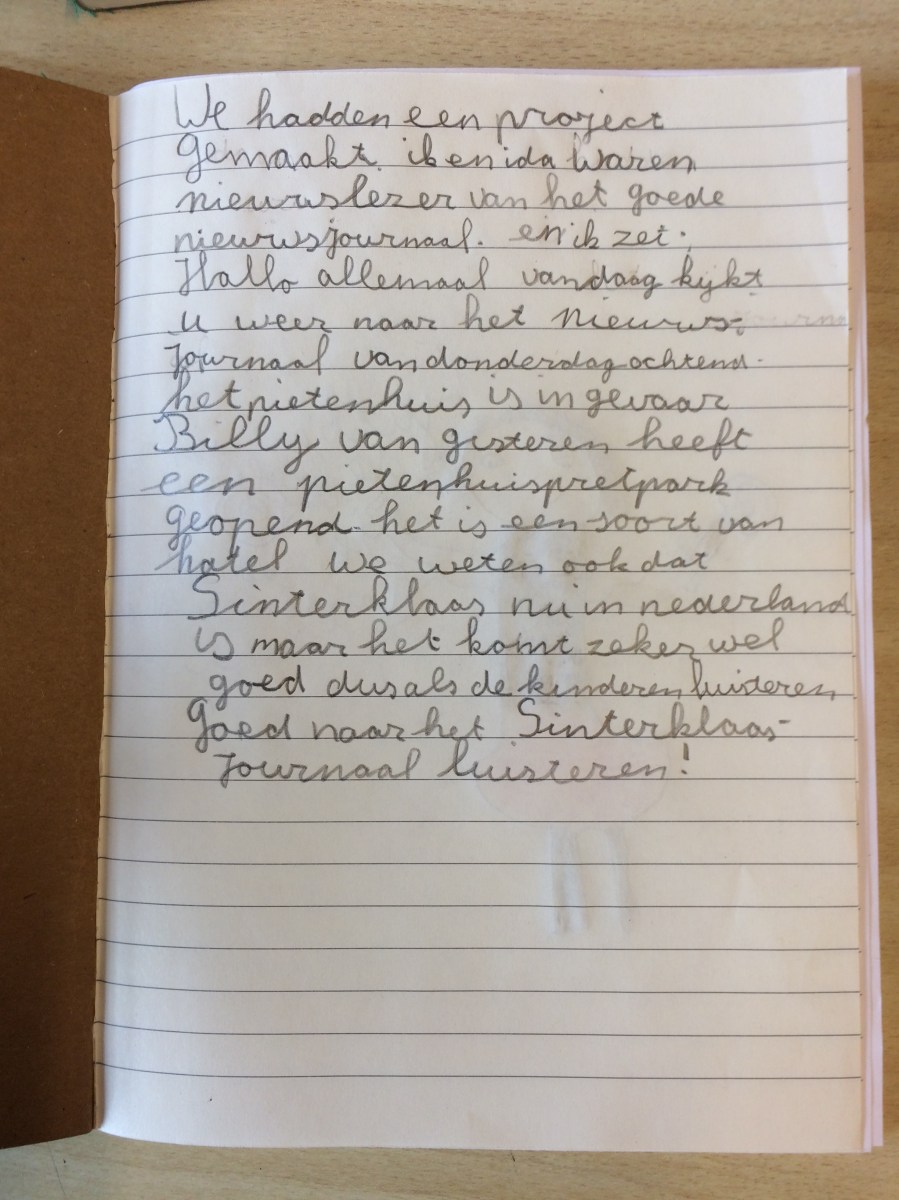 We hadden een project
gemaakt. ik en ida waren
nieuwslezer van het goede
nieuwsjournaal. en ik zei.
Hallo allemaal vandaag kijkt
u weer naar het nieuws-
journaal van donderdagochtend.
het pietenhuis is in gevaar
Billy van gisteren heeft
een pietenhuispretpark
geopend. het is een soort van
hatel we weten ook dat
Sinterklaas nu in nederland
is maar het komt zeker wel
goed dus als de kinderen luisteren
goed naar het Sinterklaas-
journaal luisteren!